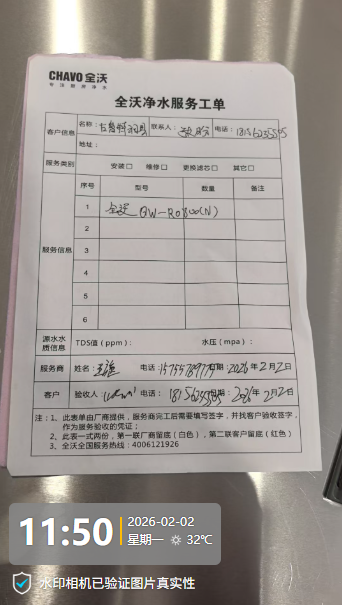 CHAVO全沃
专注敢泡净水
全沃净水服务工单
客户信息 名称： 联系人： 电话：
地址：
服务类别 安装□ 维修□ 更换滤芯□ 其它□
服务信息 序号 型号 数量 备注
1 全沃 QW-R0800(N)
2
3
4
5
6
源水水质信息 TDS值（ppm）： 水压（mpa）：
服务商 姓名： 电话： 日期：2026年2月2日
客户 验收人： 电话： 日期：2026年2月2日
注：1、此表单由厂商提供，服务商完工后需要填写签字，并找客户验收签字，
作为服务验收的凭证；
2、此表一式两份，第一联厂商留底（白色），第二联客户留底（红色）
3、全沃全国服务热线：4006121926
11:50
2026-02-02
星期一 32℃
水印相机已验证图片真实性